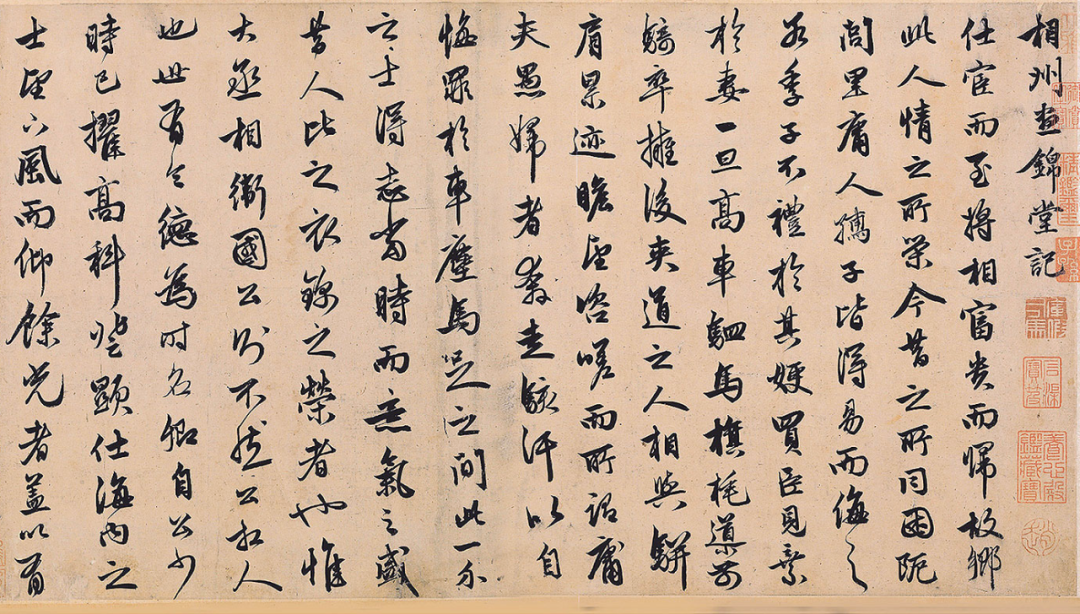 相州晝錦堂記
仕宦而至將相富貴而歸故鄉
此人情之所榮今昔之所同困阨
閭里庸人孺子皆得易而侮之
若季子不禮於其嫂買臣見棄
於妻一旦高車駟馬旗旄導前
騎卒擁後夾道之人相與駢
肩累迹瞻望咨嗟而所謂庸
夫愚婦者奔走駭汗以自
悔罪於車塵馬足之間此一介
之士得志當時而意氣之盛
昔人比之衣錦之榮者也惟
大丞相衛國公則不然公相人
也世有令德為時名卿自公少
時已擢高科登顯仕海內之
士望下風而仰餘光者蓋以有